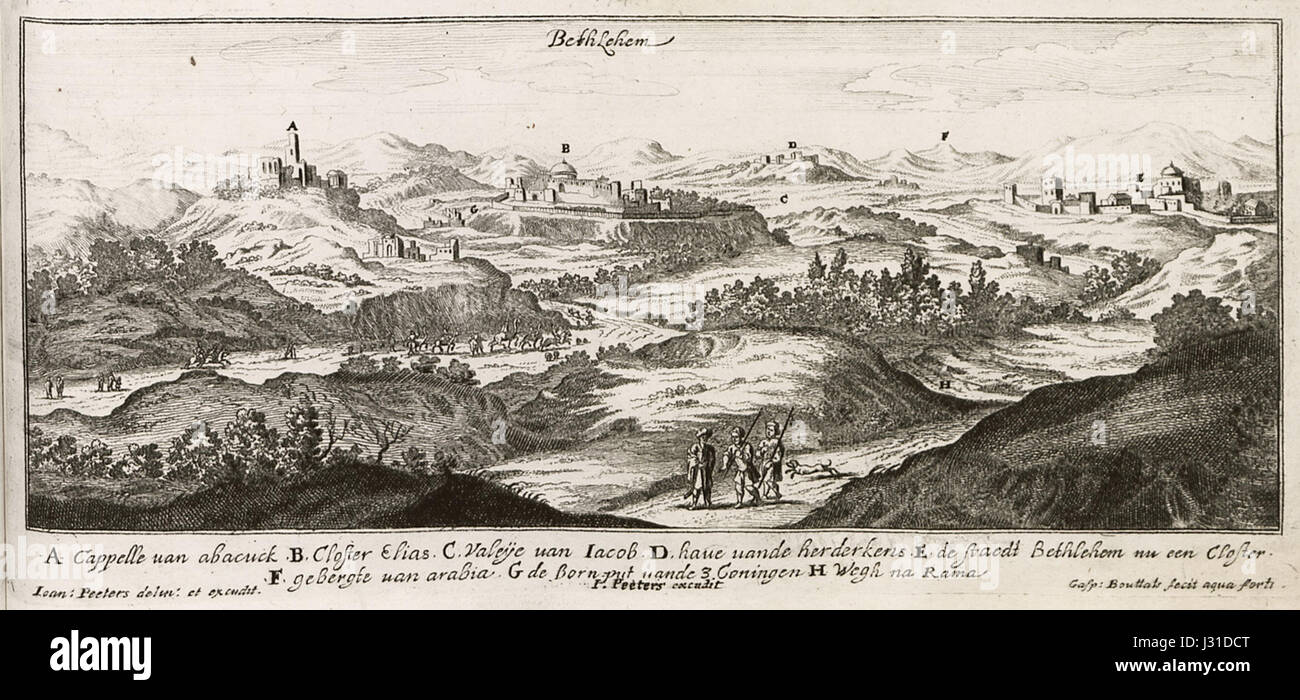 Bethlehem
A
B
D
F
C
G
E
H
A Cappelle van abacuck. B. Closter Elias. C. Valeÿe van Iacob. D. haue vande herderkens. E. de staedt Bethlehem nu een Closter.
F. gebergte van arabia. G de Born put vande 3. Coningen H Wegh na Rama
Ioan: Peeters delin: et excudit.
P. Peeters excudit
Gasp: Bouttats fecit aqua forti
alamy
Image ID: J31DCT
www.alamy.com